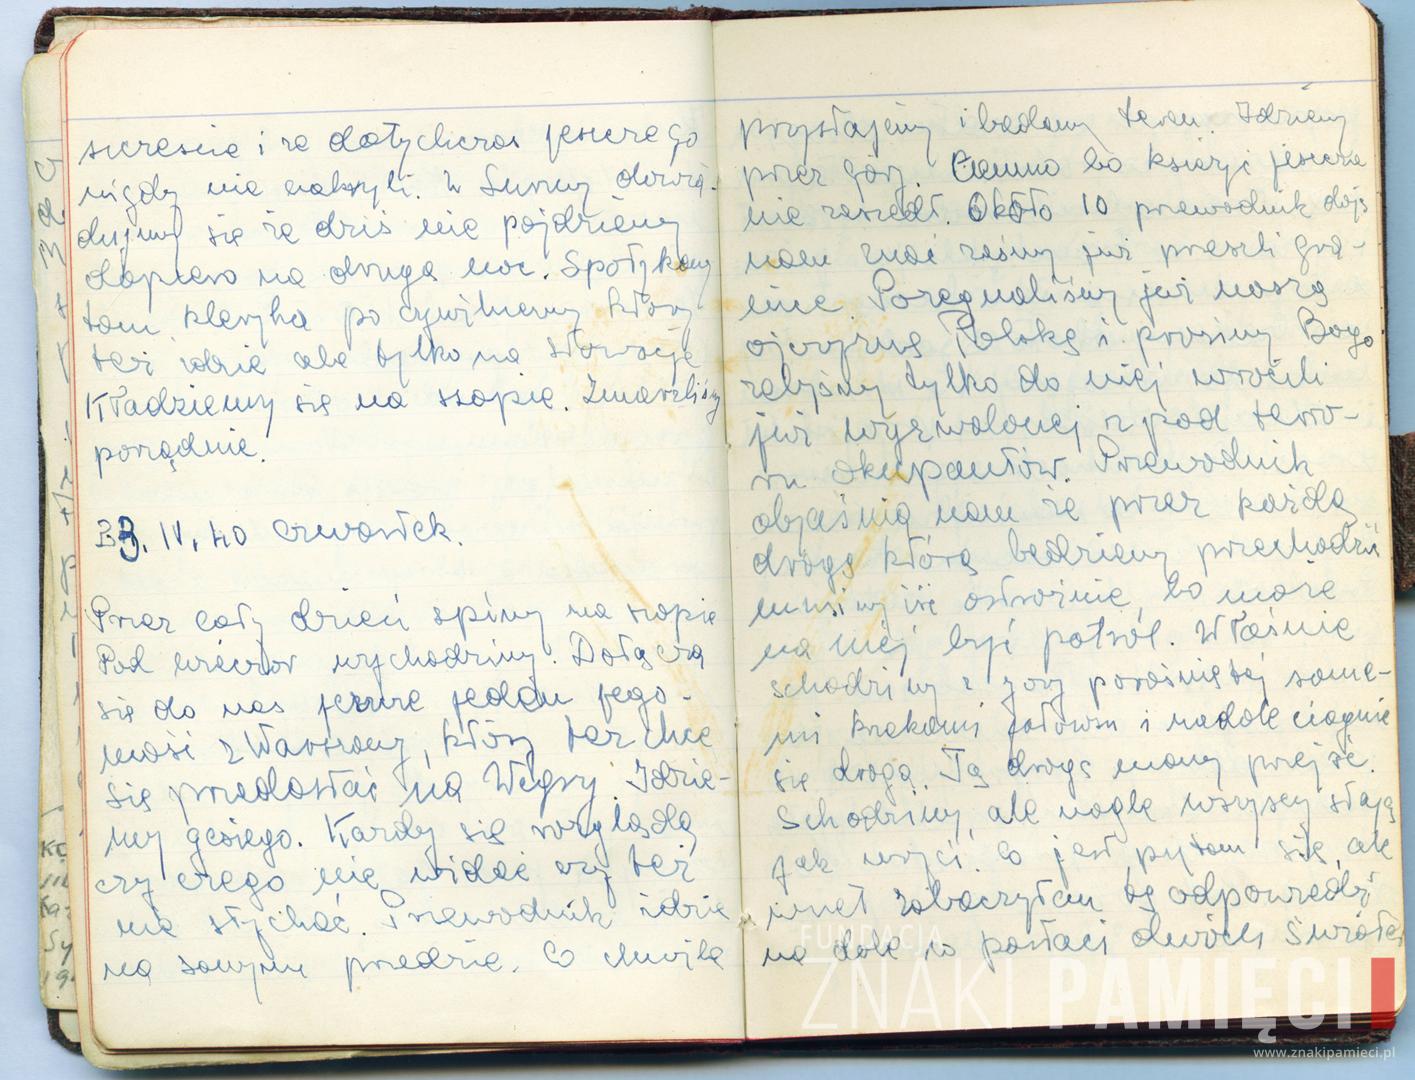 szczęście i że dotychczas jeszcze go
nigdy nie nakryli. W Surowy dowia-
dujemy się że dziś nie pójdziemy
dopiero na drugą noc. Spotykamy
tam kleryka po cywilnemu który
też idzie ale tylko na Słowację
Kładziemy się na szopie. Zmarzliśmy
porządnie.
3. IV. 40 czwartek.
Przez cały dzień śpimy na szopie
Pod wieczór wychodzimy. Dołącza
się do nas jeszcze jeden jego-
mość z Warszawy, który też chce
się przedostać na Węgry. Idzie-
my gęsiego. Każdy się rozgląda
czy czego nie widać czy też
nie słychać. Przewodnik idzie
na samym przedzie. Co chwila
przystajemy i badamy teren. Idziemy
przez góry. Ciemno bo księżyc jeszcze
nie zeszedł. Około 10 przewodnik daje
nam znać żeśmy już przeszli gra-
nicę. Pożegnaliśmy już naszą
ojczyznę Polskę i prosimy Boga
żebyśmy tylko do niej wrócili
już wyzwolonej z pod terro-
ru okupantów. Przewodnik
objaśnia nam że przez każdą
drogę którą będziemy przechodzić
musimy iść ostrożnie, bo może
na niej być patrol. Właśnie
schodzimy z góry porośniętej same-
mi krzakami jałowcu i na dole ciągnie
się droga. Tą drogę mamy przejść.
Schodzimy, ale nagle wszyscy stają
jak wryci. Co jest pytam się, ale
wnet zobaczyłem tę odpowiedź
na dole w postaci dwóch świateł
FUNDACJA
ZNAKI PAMIĘCI
www.znakipamieci.pl